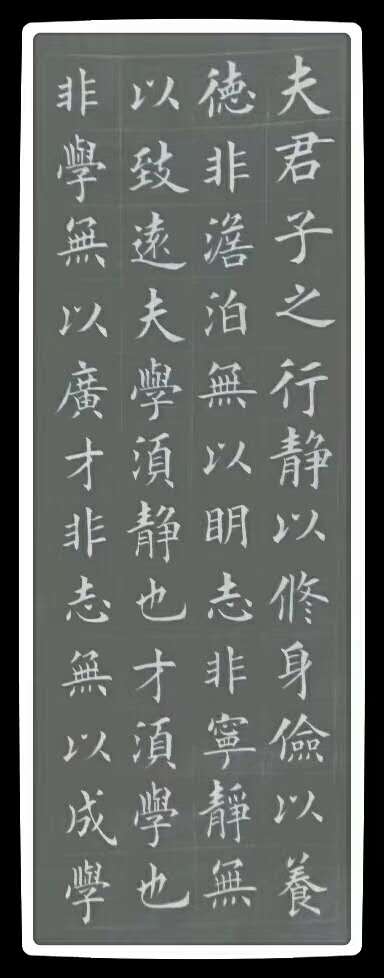 夫君子之行静以修身儉以養
徳非澹泊無以明志非寧靜無
以致遠夫學須静也才須學也
非學無以廣才非志無以成學